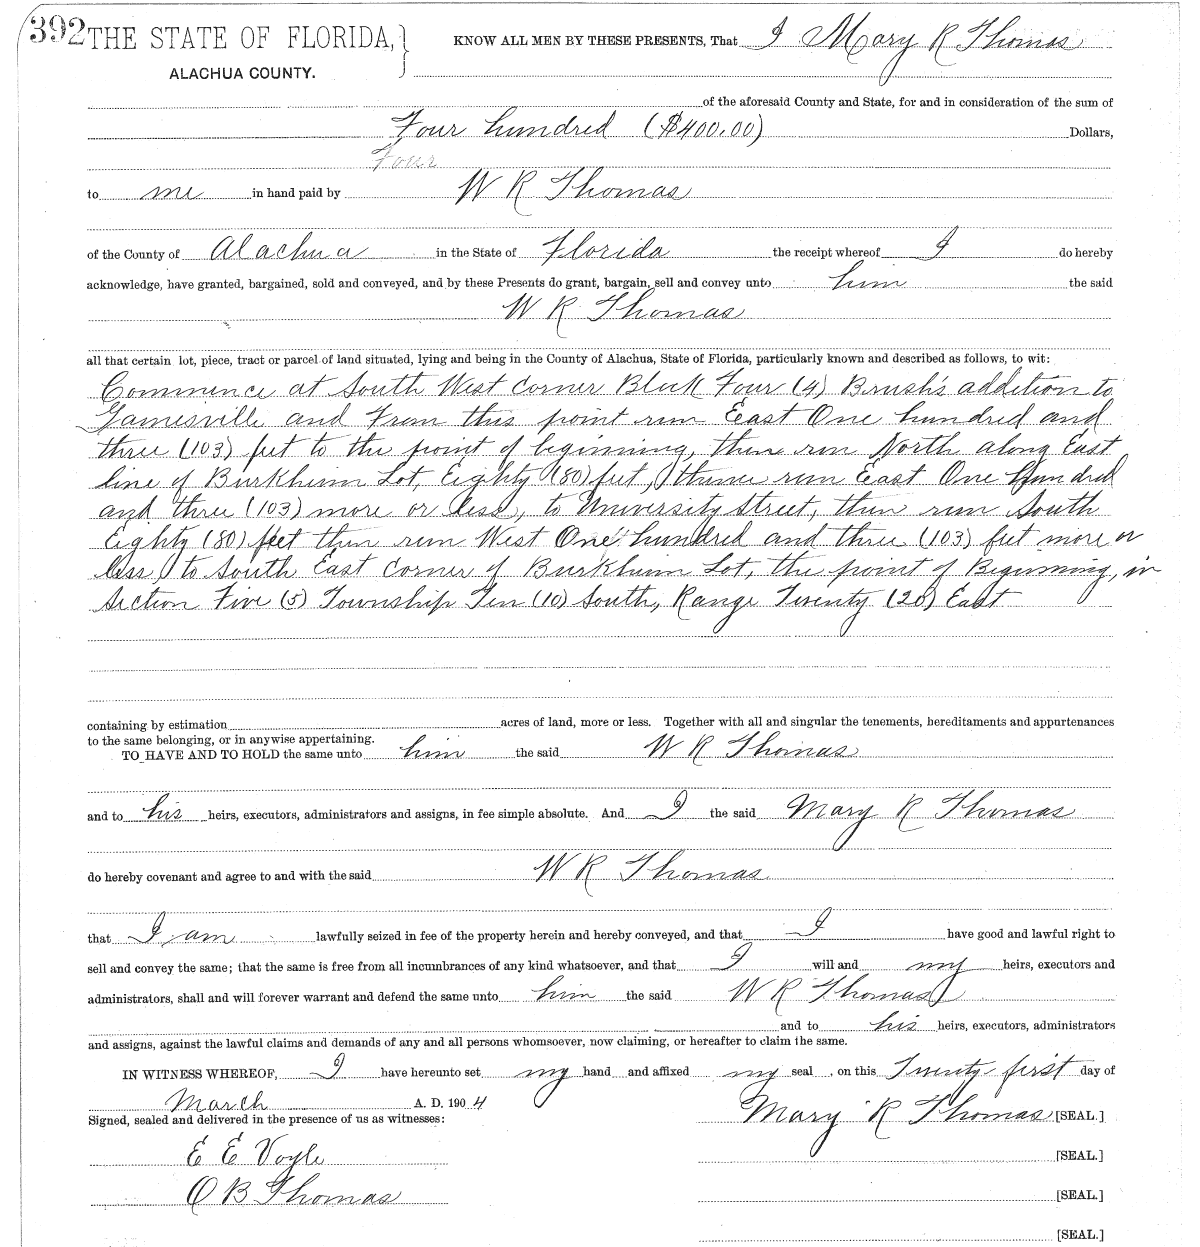 392 THE STATE OF FLORIDA,
ALACHUA COUNTY.
KNOW ALL MEN BY THESE PRESENTS, That I Mary R Thomas
of the aforesaid County and State, for and in consideration of the sum of
Four hundred ($400.00) Dollars,
Four
to me in hand paid by W R Thomas
of the County of Alachua in the State of Florida the receipt whereof I do hereby
acknowledge, have granted, bargained, sold and conveyed, and by these Presents do grant, bargain, sell and convey unto him the said
W R Thomas
all that certain lot, piece, tract or parcel of land situated, lying and being in the County of Alachua, State of Florida, particularly known and described as follows, to wit:
Commence at South West Corner Block Four (4) Brush's addition to
Gainesville and From this point run East One hundred and
three (103) feet to the point of beginning, thence run North along East
line of Burkheim Lot, Eighty (80) feet, thence run East One Hundred
and three (103) more or less, to University street, then run South
Eighty (80) feet then run West One hundred and three (103) feet more or
less, to South East Corner of Burkheim Lot, the point of Beginning, in
Section Five (5) Township Ten (10) South, Range Twenty (20) East
containing by estimation acres of land, more or less. Together with all and singular the tenements, hereditaments and appurtenances
to the same belonging, or in anywise appertaining.
TO HAVE AND TO HOLD the same unto him the said W R Thomas
and to his heirs, executors, administrators and assigns, in fee simple absolute. And I the said Mary R Thomas
do hereby covenant and agree to and with the said W R Thomas
that I am lawfully seized in fee of the property herein and hereby conveyed, and that I have good and lawful right to
sell and convey the same; that the same is free from all incumbrances of any kind whatsoever, and that I will and my heirs, executors and
administrators, shall and will forever warrant and defend the same unto him the said W R Thomas
and to his heirs, executors, administrators
and assigns, against the lawful claims and demands of any and all persons whomsoever, now claiming, or hereafter to claim the same.
IN WITNESS WHEREOF, I have hereunto set my hand and affixed my seal, on this Twenty first day of
March A. D. 1904
Signed, sealed and delivered in the presence of us as witnesses:
Mary R Thomas [SEAL.]
E E Voyle [SEAL.]
O B Thomas [SEAL.]
[SEAL.]